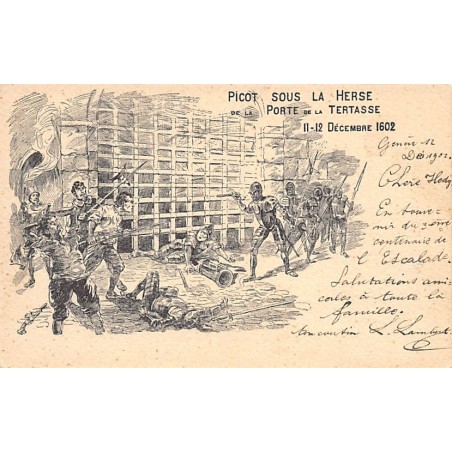 PICOT SOUS LA HERSE
DE LA PORTE DE LA TERTASSE
11-12 DÉCEMBRE 1602
Genève 12
Déc 1902.
Chère Hedy
En souve-
nir du 3ème
centenaire de
l'Escalade.
Salutations ami-
cales à toute la
famille.
ton cousin L. Lambert.